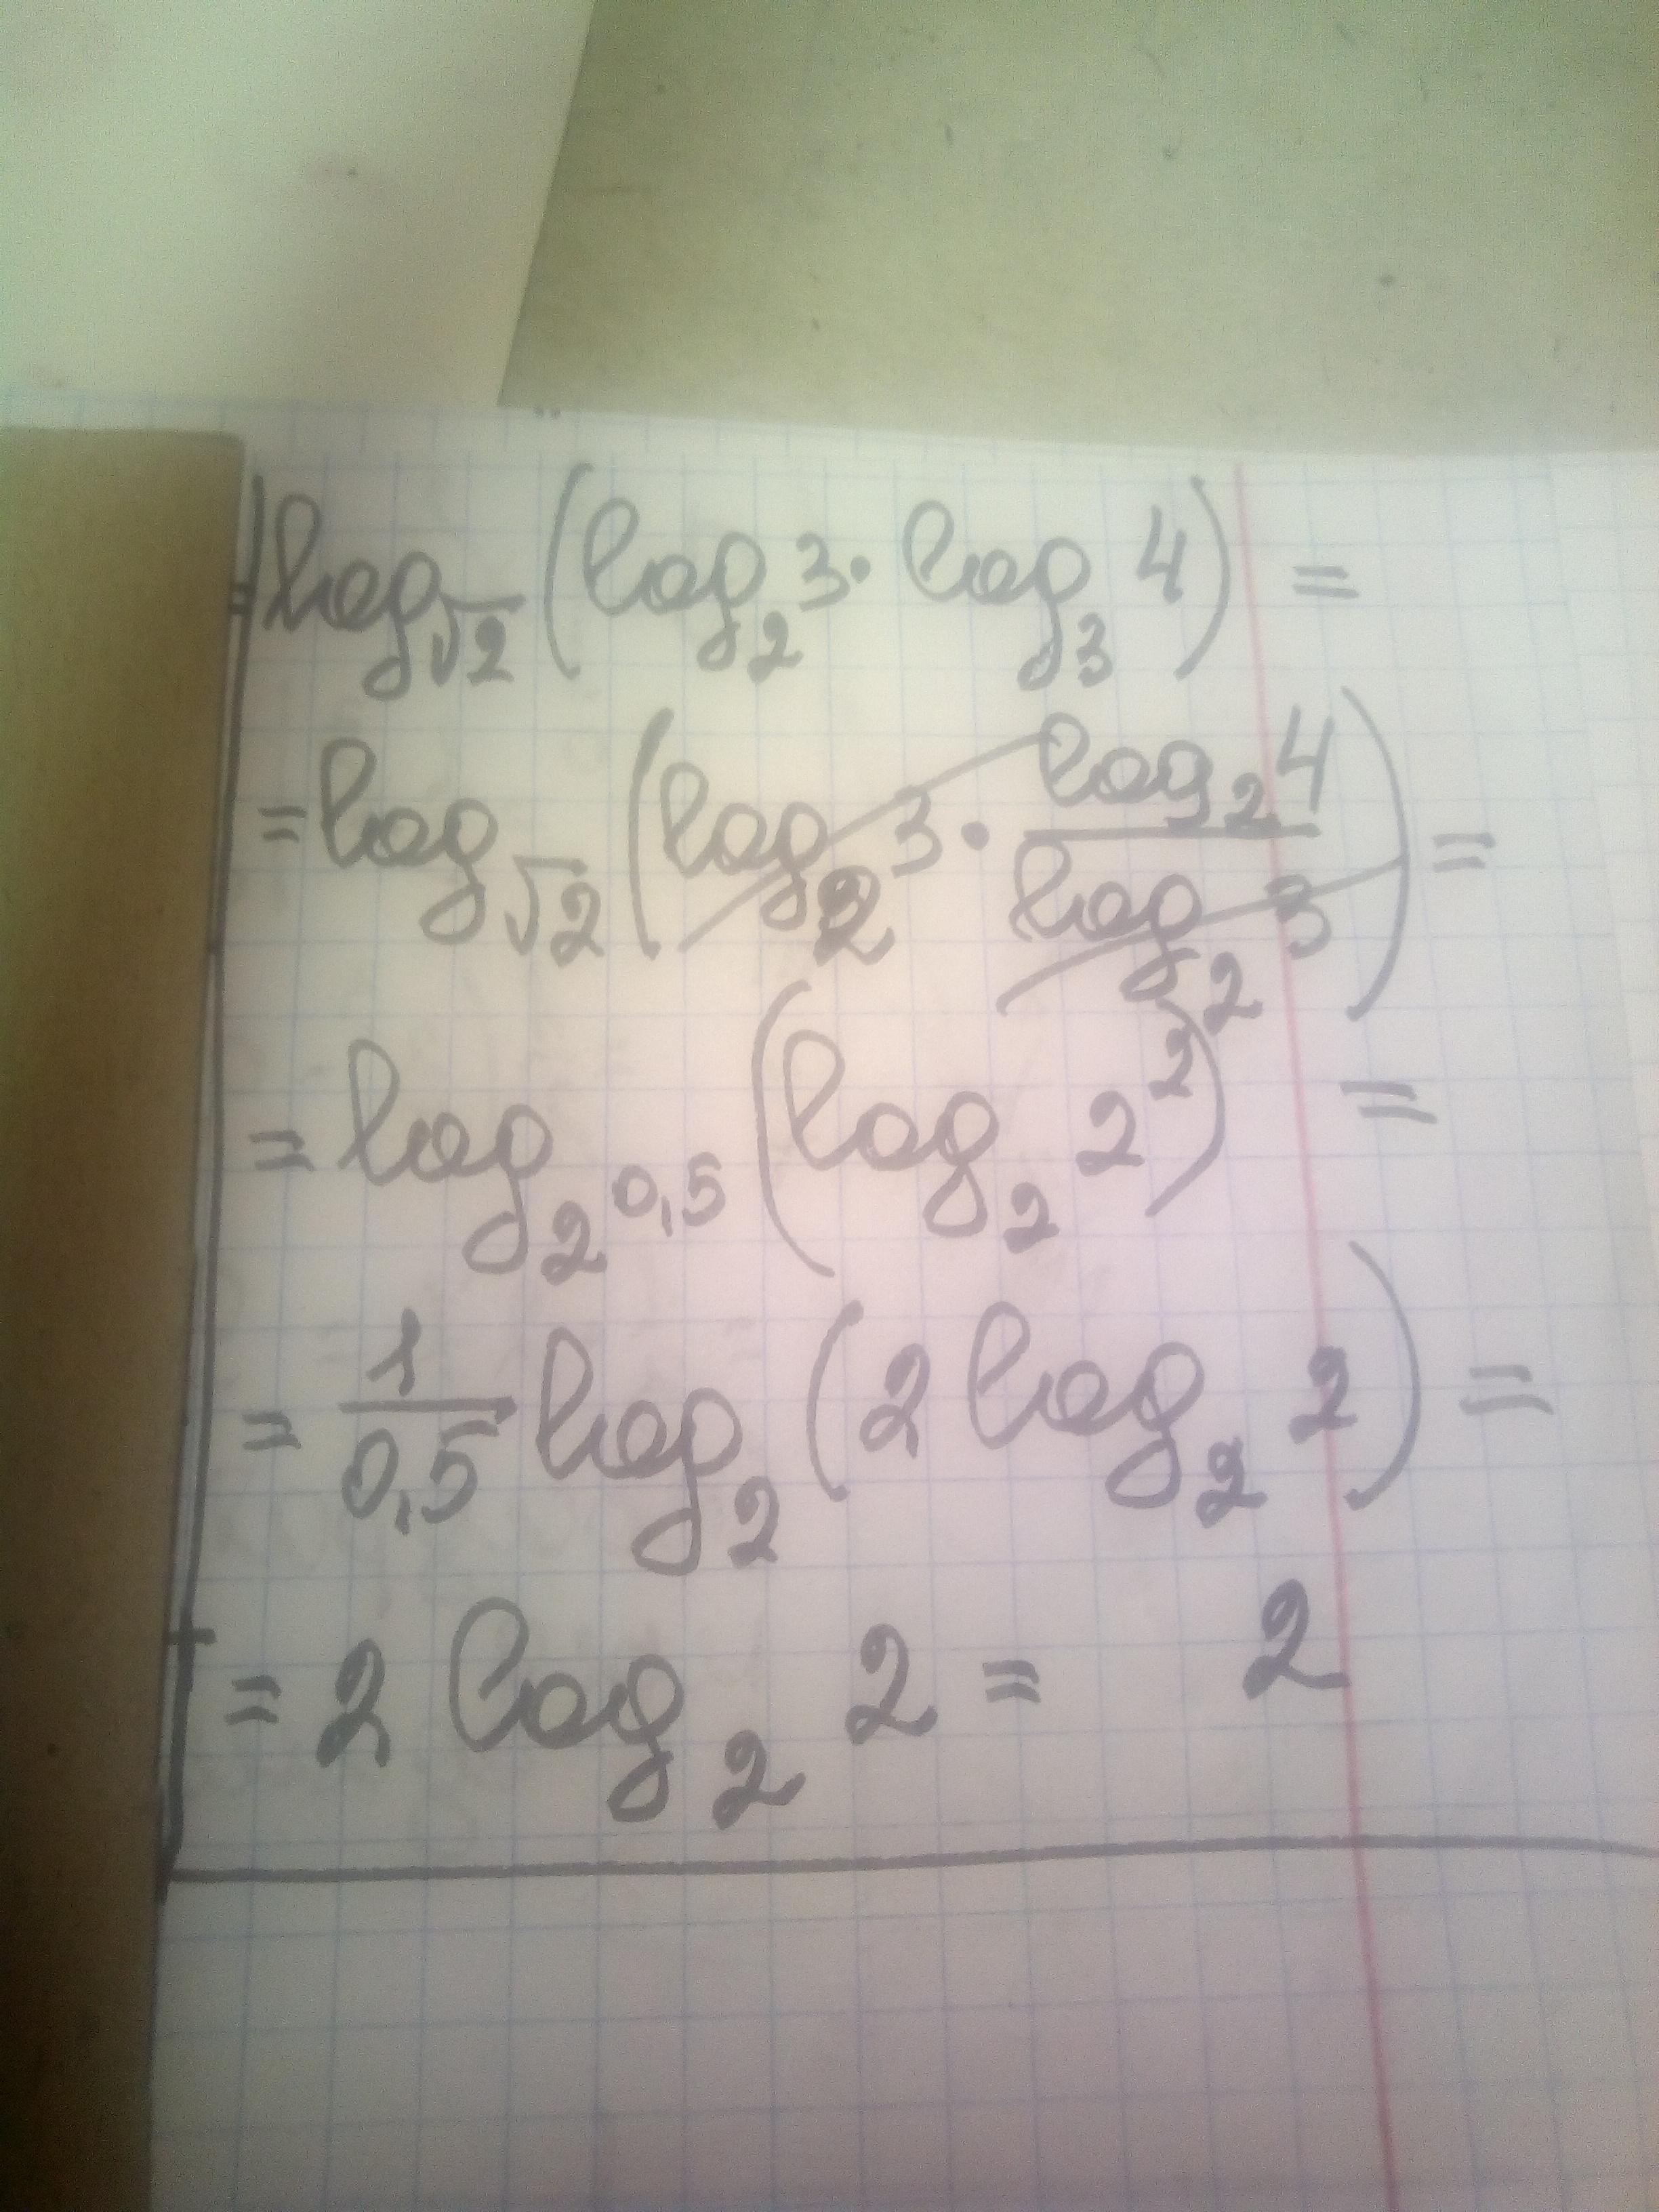 log√2 (log₂ 3 · log₃ 4) =
= log√2 (log₂ 3 · log₂ 4 / log₂ 3) =
= log₂^0,5 (log₂ 2²) =
= 1/0,5 log₂ (2 log₂ 2) =
= 2 log₂ 2 = 2